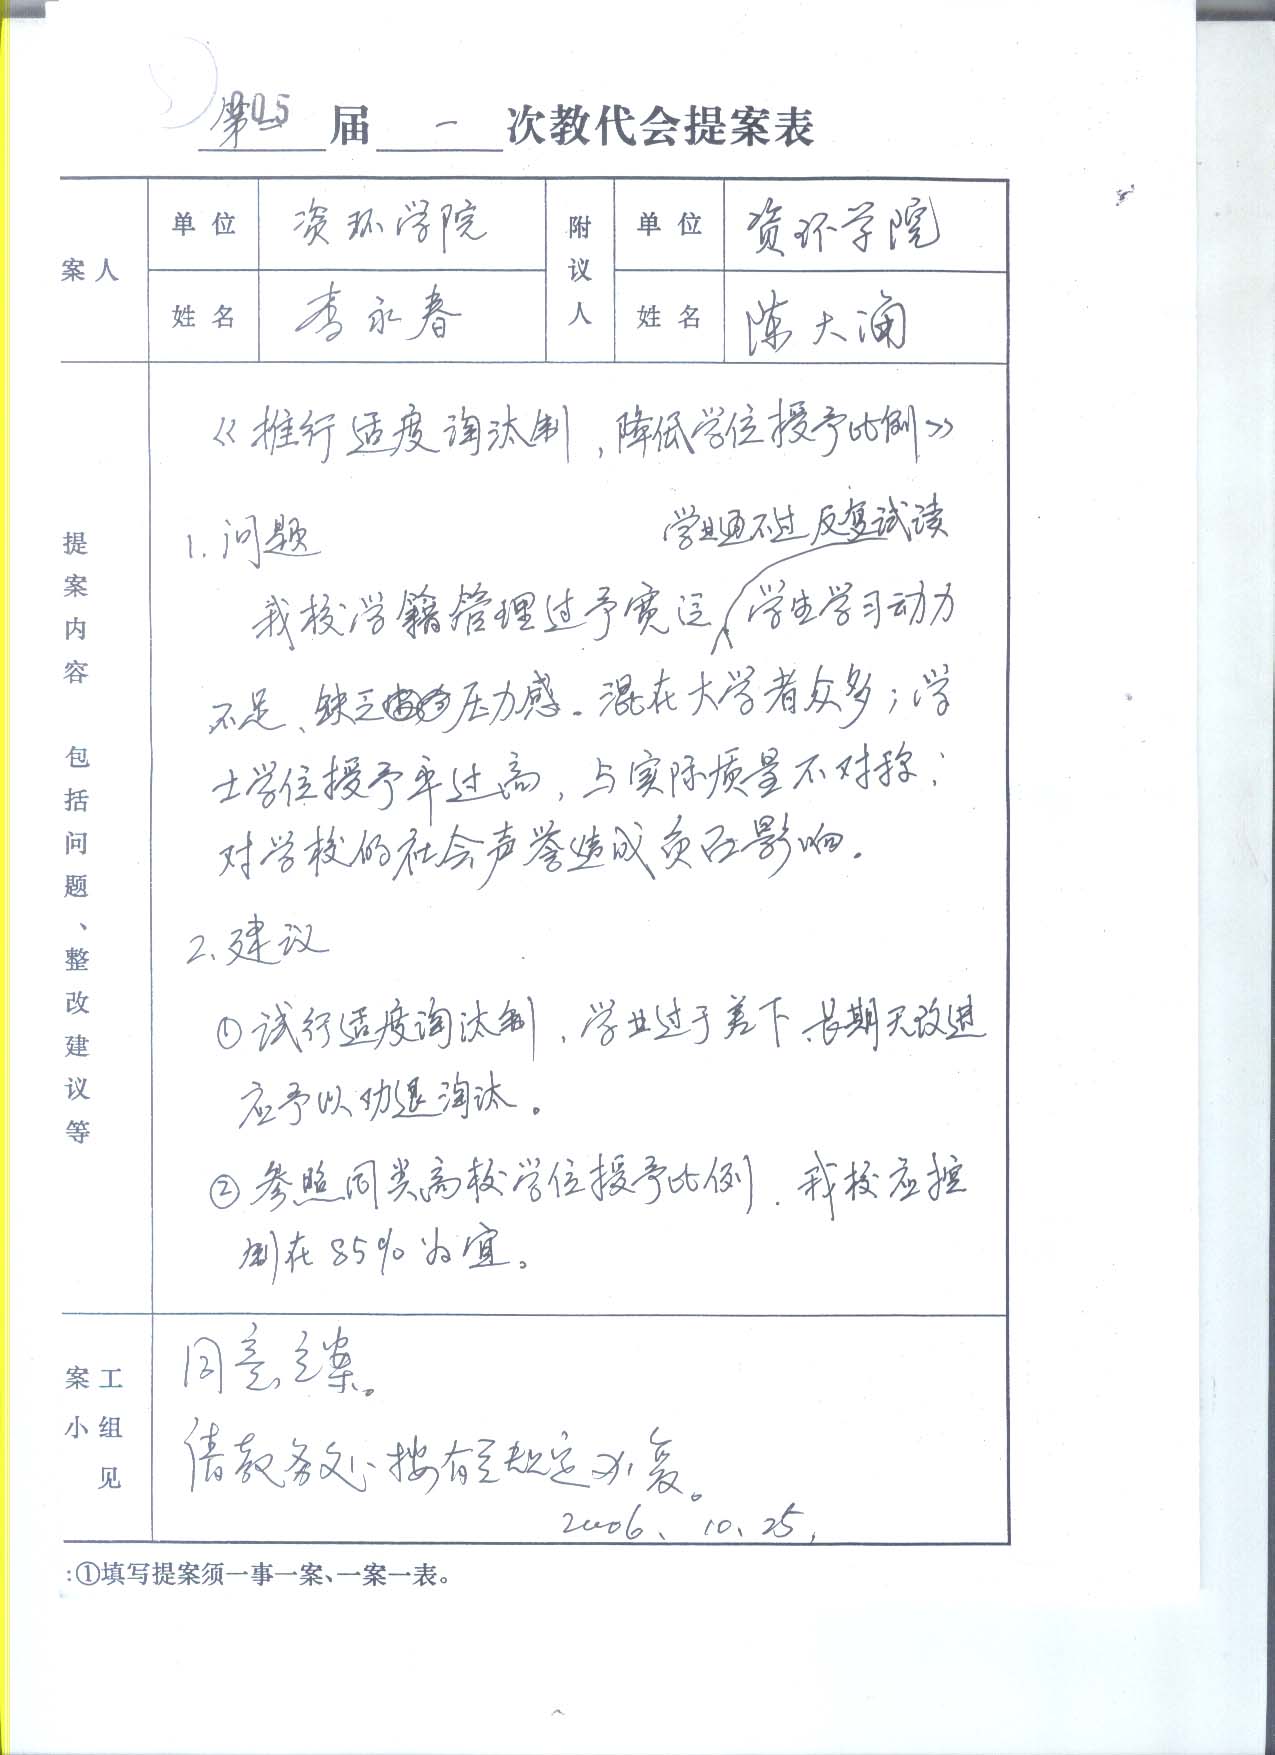 005
第一届 一 次教代会提案表
案人 单位 资环学院 附议人 单位 资环学院
姓名 李永春 姓名 陈大涌
提案内容 包括问题、整改建议等
《推行适度淘汰制，降低学位授予比例》
1.问题
学业通不过反复试读
我校学籍管理过予宽泛，学生学习动力
不足、缺乏压力感。混在大学者众多；学
士学位授予率过高，与实际质量不对称；
对学校的社会声誉造成负面影响。
2.建议
①试行适度淘汰制，学业过于差下、长期无改进
应予以劝退淘汰。
②参照同类高校学位授予比例，我校应控
制在85%为宜。
案工
小组
见
同意立案。
请教务处按有关规定办复。
2006、10、25，
:①填写提案须一事一案、一案一表。